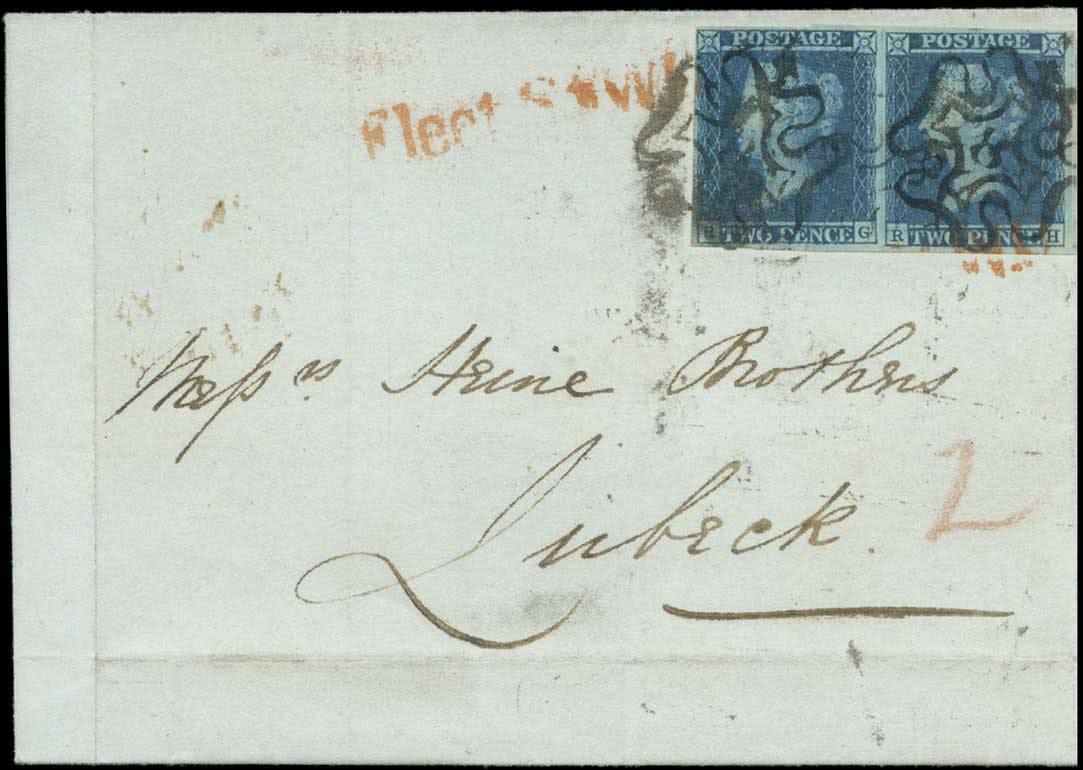 POSTAGE POSTAGE
Fleet St
R TWO PENCE G R TWO PENCE H
Messrs Heine Brothers
Lubeck.
2